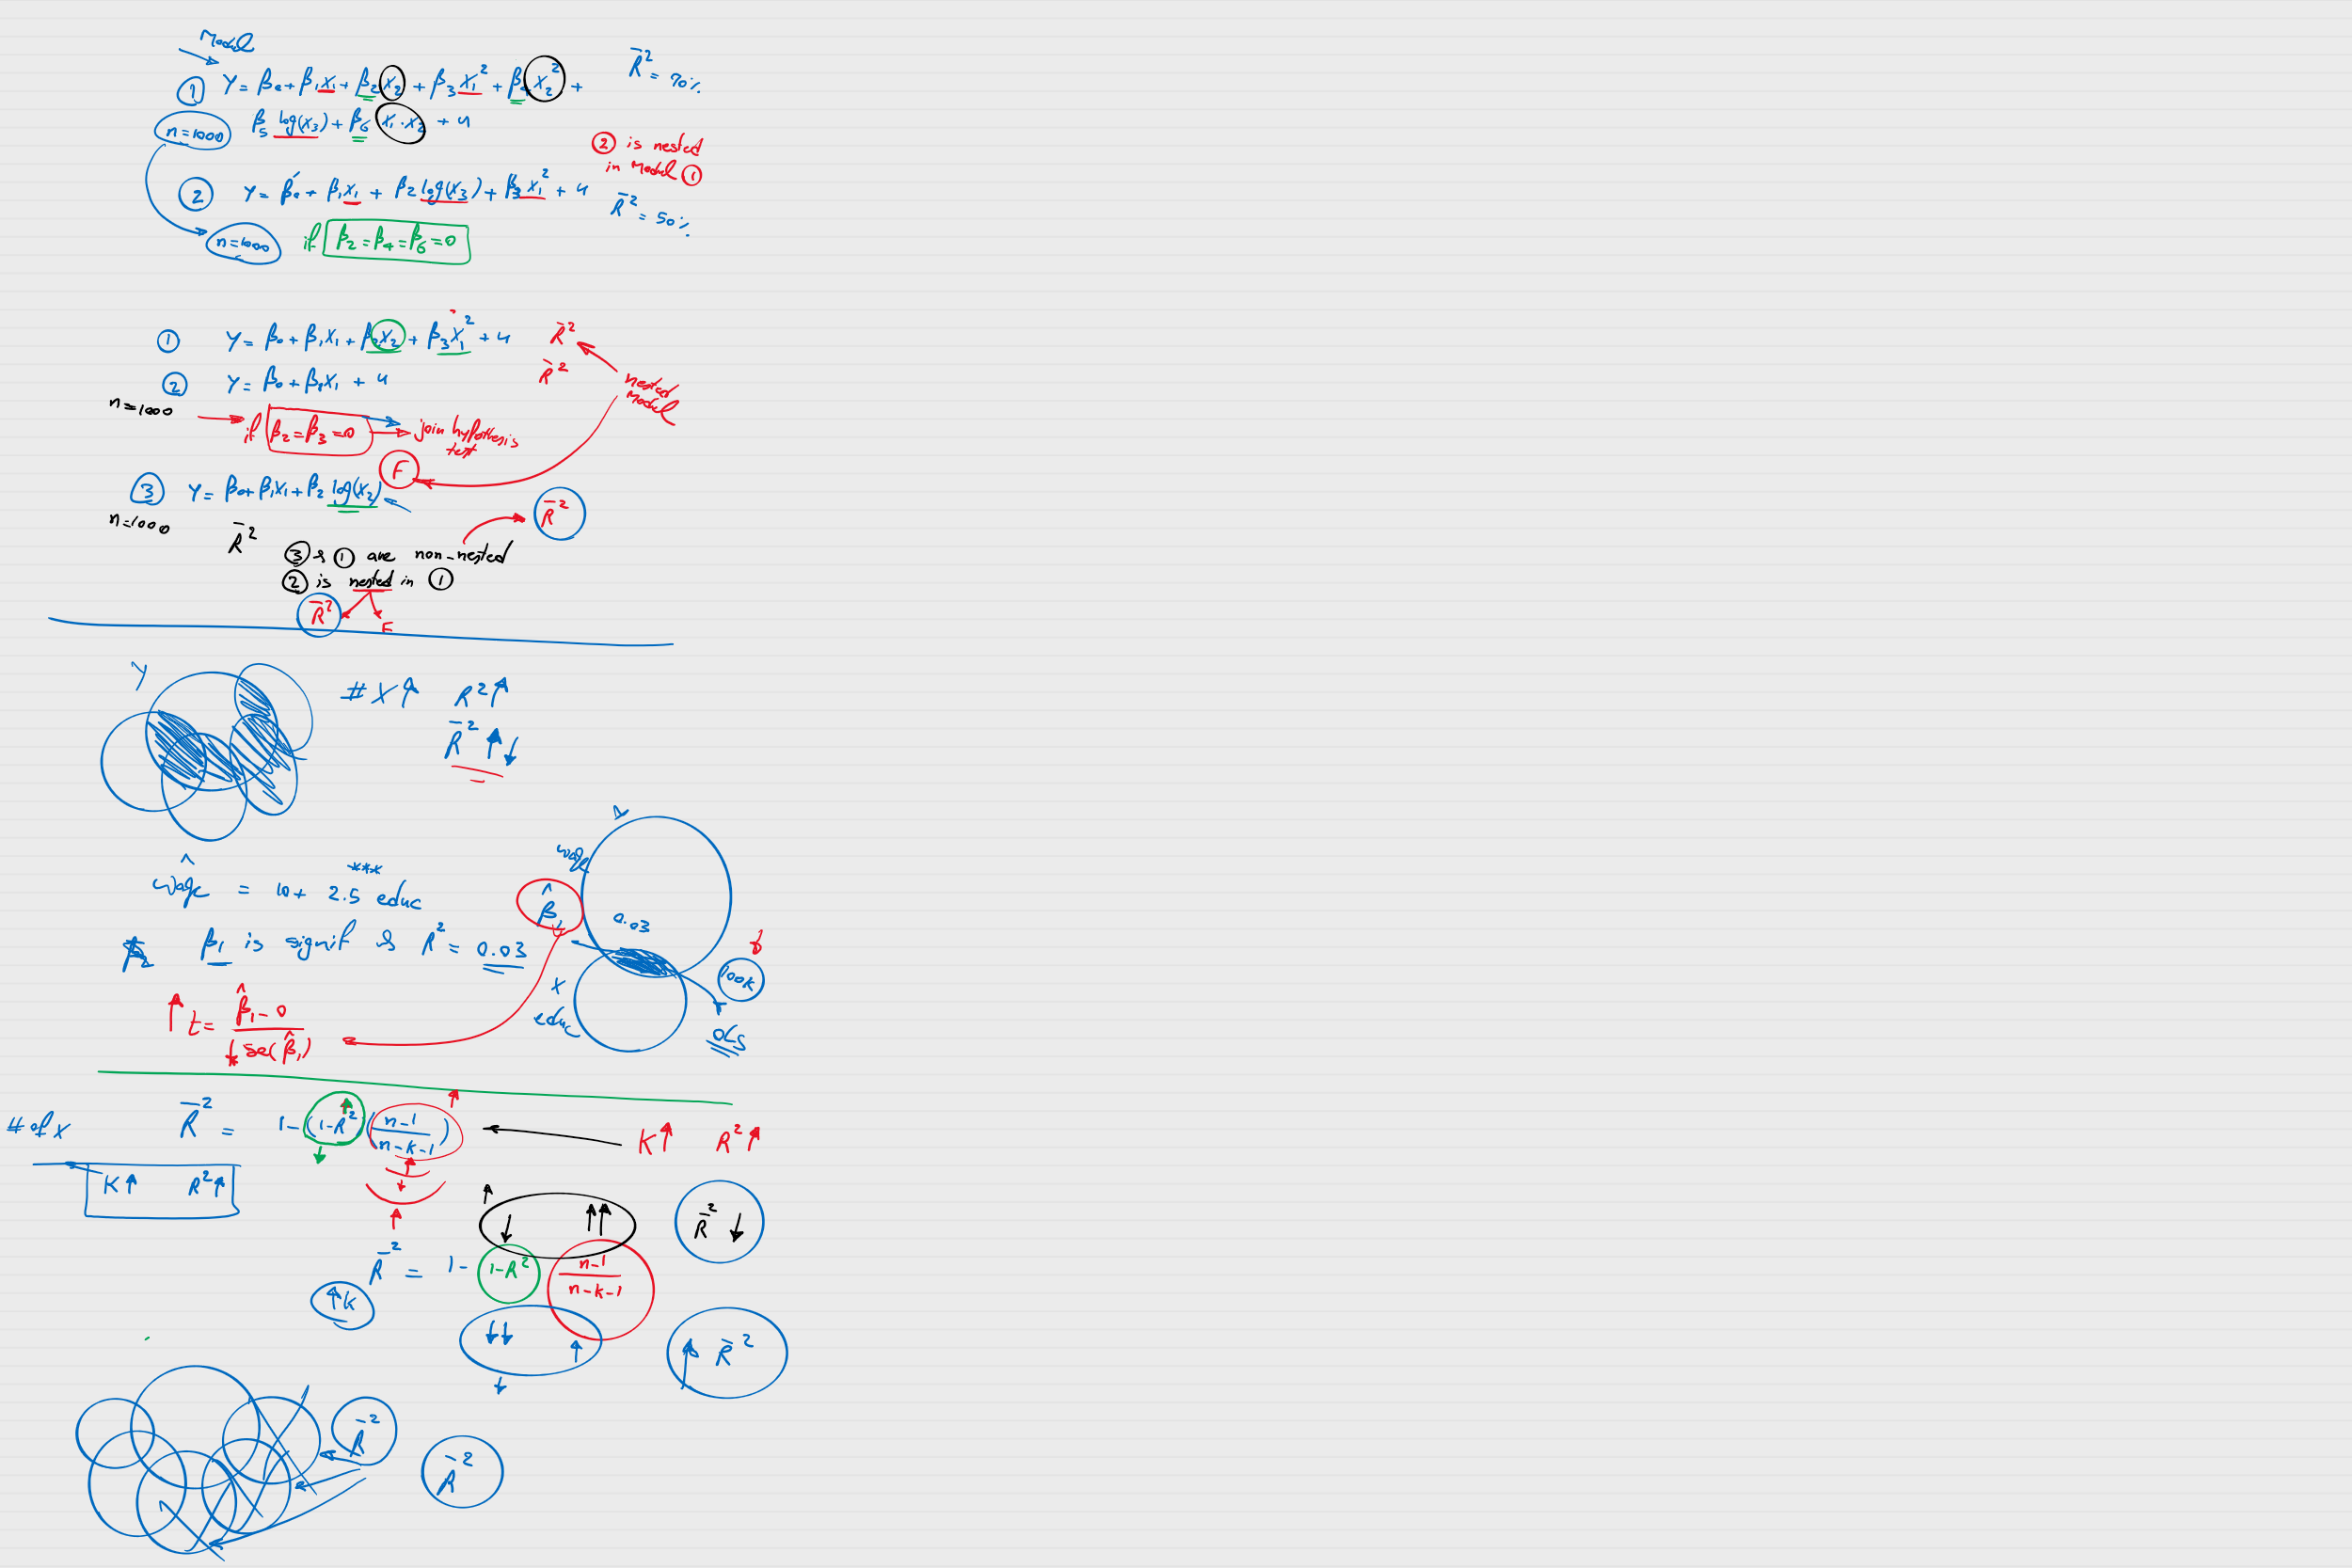 Model
① Y = β₀ + β₁x₁ + β₂x₂ + β₃x₁² + β₄x₂² +
R̄² = 70%
β₅ log(x₃) + β₆ x₁·x₂ + u
n=1000
② is nested
in Model ①
② Y = β₀ + β₁x₁ + β₂ log(x₃) + β₃x₁² + u
R̄² = 50%
n=1000
if β₂=β₄=β₆=0
① Y = β₀ + β₁x₁ + β₂x₂ + β₃x₁² + u
R̄²
② Y = β₀ + β₁x₁ + u
R̄²
nested
model
n=1000
if β₂=β₃=0 join hypothesis
test
F
③ Y = β₀+β₁x₁+β₂ log(x₂)
n=1000
R̄²
R̄²
③ & ① are non-nested
② is nested in ①
R̄² F
Y
#X↑ R²↑
R̄²↑↓
wage
^ ***
wage = 10+ 2.5 educ
β̂₁
0.03
β₁ is signif & R² = 0.03
100K
X
educ
OLS
↑t = β̂₁-0
↓se(β̂₁)
# of X
R̄² = 1-(1-R²)(n-1
n-k-1)
K↑ R²↑
K↑ R²↑
↑
↓ ↑↑
R̄²↓
R̄² = 1- 1-R² n-1
n-k-1
↑K
↓↓ ↑
↑R̄²
↓
R̄²
R̄²